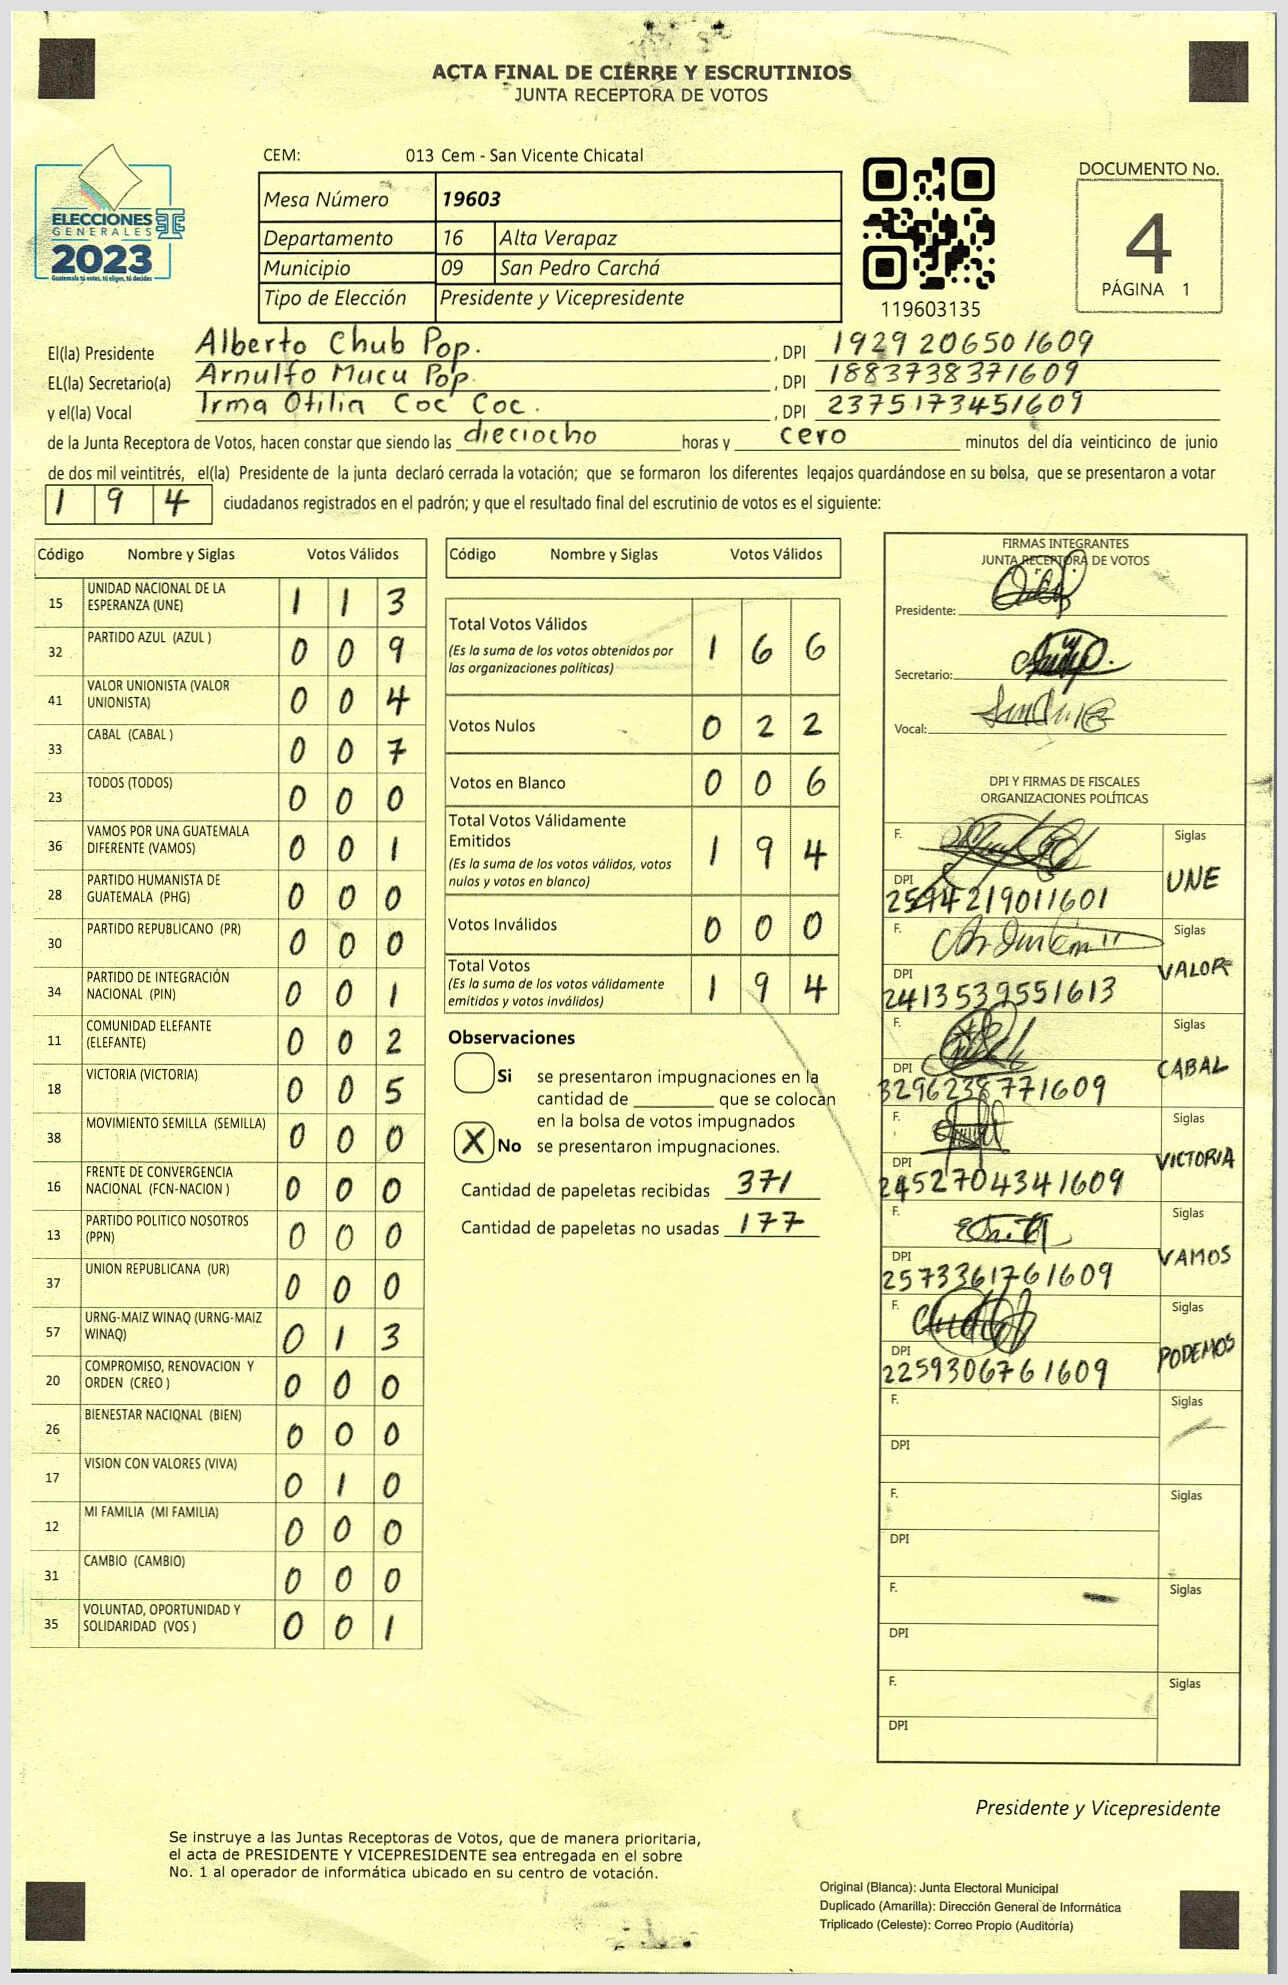 ACTA FINAL DE CIERRE Y ESCRUTINIOS
JUNTA RECEPTORA DE VOTOS
ELECCIONES
GENERALES
2023
Guatemala tú votas, tú eliges, tú decides
CEM: 013 Cem - San Vicente Chicatal
Mesa Número 19603
Departamento 16 Alta Verapaz
Municipio 09 San Pedro Carchá
Tipo de Elección Presidente y Vicepresidente
119603135
DOCUMENTO No.
4
PÁGINA 1
El(la) Presidente Alberto Chub Pop. , DPI 1929 20650 1609
EL(la) Secretario(a) Arnulfo Mucu Pop. , DPI 1883738371609
y el(la) Vocal Irma Otilia Coc Coc. , DPI 2375173451609
de la Junta Receptora de Votos, hacen constar que siendo las dieciocho horas y cero minutos del día veinticinco de junio
de dos mil veintitrés, el(la) Presidente de la junta declaró cerrada la votación; que se formaron los diferentes legajos quardándose en su bolsa, que se presentaron a votar
1 9 4 ciudadanos registrados en el padrón; y que el resultado final del escrutinio de votos es el siguiente:
Código Nombre y Siglas Votos Válidos
15 UNIDAD NACIONAL DE LA ESPERANZA (UNE) 1 1 3
32 PARTIDO AZUL (AZUL ) 0 0 9
41 VALOR UNIONISTA (VALOR UNIONISTA) 0 0 4
33 CABAL (CABAL ) 0 0 7
23 TODOS (TODOS) 0 0 0
36 VAMOS POR UNA GUATEMALA DIFERENTE (VAMOS) 0 0 1
28 PARTIDO HUMANISTA DE GUATEMALA (PHG) 0 0 0
30 PARTIDO REPUBLICANO (PR) 0 0 0
34 PARTIDO DE INTEGRACIÓN NACIONAL (PIN) 0 0 1
11 COMUNIDAD ELEFANTE (ELEFANTE) 0 0 2
18 VICTORIA (VICTORIA) 0 0 5
38 MOVIMIENTO SEMILLA (SEMILLA) 0 0 0
16 FRENTE DE CONVERGENCIA NACIONAL (FCN-NACION ) 0 0 0
13 PARTIDO POLITICO NOSOTROS (PPN) 0 0 0
37 UNION REPUBLICANA (UR) 0 0 0
57 URNG-MAIZ WINAQ (URNG-MAIZ WINAQ) 0 1 3
20 COMPROMISO, RENOVACION Y ORDEN (CREO ) 0 0 0
26 BIENESTAR NACIONAL (BIEN) 0 0 0
17 VISION CON VALORES (VIVA) 0 1 0
12 MI FAMILIA (MI FAMILIA) 0 0 0
31 CAMBIO (CAMBIO) 0 0 0
35 VOLUNTAD, OPORTUNIDAD Y SOLIDARIDAD (VOS ) 0 0 1
Código Nombre y Siglas Votos Válidos
Total Votos Válidos 1 6 6
(Es la suma de los votos obtenidos por
las organizaciones políticas)
Votos Nulos 0 2 2
Votos en Blanco 0 0 6
Total Votos Válidamente
Emitidos 1 9 4
(Es la suma de los votos válidos, votos
nulos y votos en blanco)
Votos Inválidos 0 0 0
Total Votos 1 9 4
(Es la suma de los votos válidamente
emitidos y votos inválidos)
Observaciones
Si se presentaron impugnaciones en la
cantidad de ________ que se colocan
en la bolsa de votos impugnados
X No se presentaron impugnaciones.
Cantidad de papeletas recibidas 371
Cantidad de papeletas no usadas 177
FIRMAS INTEGRANTES
JUNTA RECEPTORA DE VOTOS
Presidente:
Secretario:
Vocal:
DPI Y FIRMAS DE FISCALES
ORGANIZACIONES POLÍTICAS
F. Siglas
DPI 2594219011601 UNE
F. Siglas
DPI 2413539551613 VALOR
F. Siglas
DPI 3296238771609 CABAL
F. Siglas
DPI 2452704341609 VICTORIA
F. Siglas
DPI 2573361761609 VAMOS
F. Siglas
DPI 2259306761609 PODEMOS
F. Siglas
DPI
F. Siglas
DPI
F. Siglas
DPI
F. Siglas
DPI
Presidente y Vicepresidente
Se instruye a las Juntas Receptoras de Votos, que de manera prioritaria,
el acta de PRESIDENTE Y VICEPRESIDENTE sea entregada en el sobre
No. 1 al operador de informática ubicado en su centro de votación.
Original (Blanca): Junta Electoral Municipal
Duplicado (Amarilla): Dirección General de Informática
Triplicado (Celeste): Correo Propio (Auditoría)